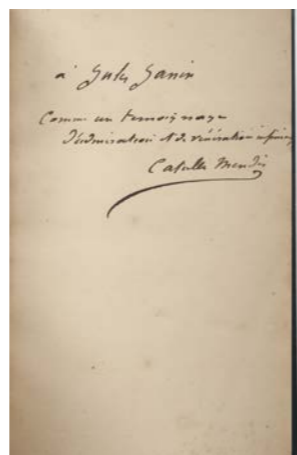 à Jules Janin
Comme un temoignage
d'admiration et de vénération infinies
Catulle Mendès